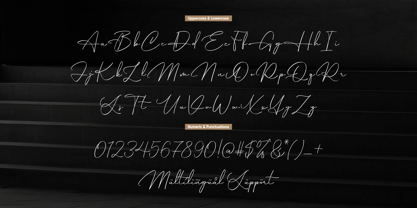 Uppercase & Lowercase
Aa Bb Cc Dd Ee Ff Gg Hh Ii
Jj Kk Ll Mm Nn Oo Pp Qq Rr
Ss Tt Uu Vv Ww Xx Yy Zz
Numeric & Punctuations
01234567890!@#$%&*()_+
Multilingual Support